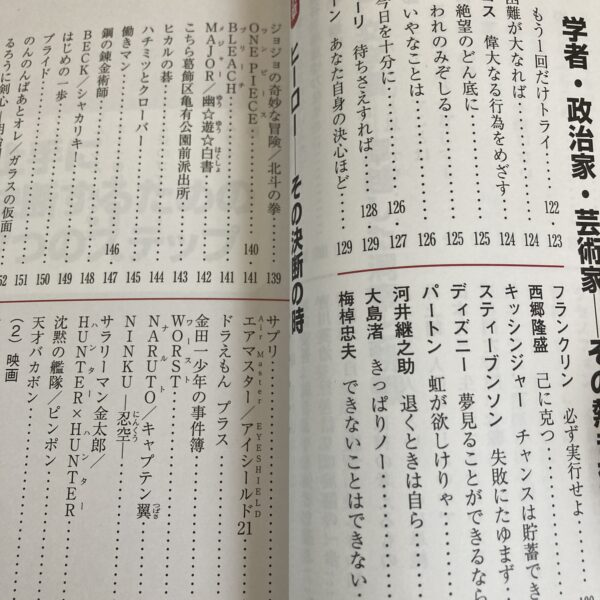 学者・政治家・芸術家――その熱
もう一回だけトライ……122
困難が大なれば……123
コス 偉大なる行為をめざす
絶望のどん底に……124
われのみぞしる……124
いやなことは……125
今日を十分に……126
ーリ 待ちさえすれば……127
128
ーン あなた自身の決心ほど……129
129
126
フランクリン 必ず実行せよ
西郷隆盛 己に克つ……
キッシンジャー チャンスは貯蓄でき
スティーブンソン 失敗にたゆまず
ディズニー 夢見ることができるなら
パートン 虹が欲しけりゃ……
河井継之助 退くときは自ら……
大島渚 きっぱりノー……
梅棹忠夫 できないことはできない
ヒーロー――その決断の時
ジョジョの奇妙な冒険／北斗の拳……139
ONE PIECE……140
BLEACH……141
MAJOR／幽☆遊☆白書……141
こちら葛飾区亀有公園前派出所……142
ヒカルの碁……143
ハチミツとクローバー……144
働きマン……145
鋼の錬金術師……146
BECK／シャカリキ……147
はじめの一歩……148
プライド……149
のんのんばあとオレ／ガラスの仮面……150
るろうに剣心
151
152
サプリ……
エアマスター／アイシールド21
ドラえもん プラス……
金田一少年の事件簿……
WORST……
NARUTO／キャプテン翼……
NINKU―忍空―……
サラリーマン金太郎／
HUNTER×HUNTER……
沈黙の艦隊／ピンポン……
天才バカボン……
（2）映画